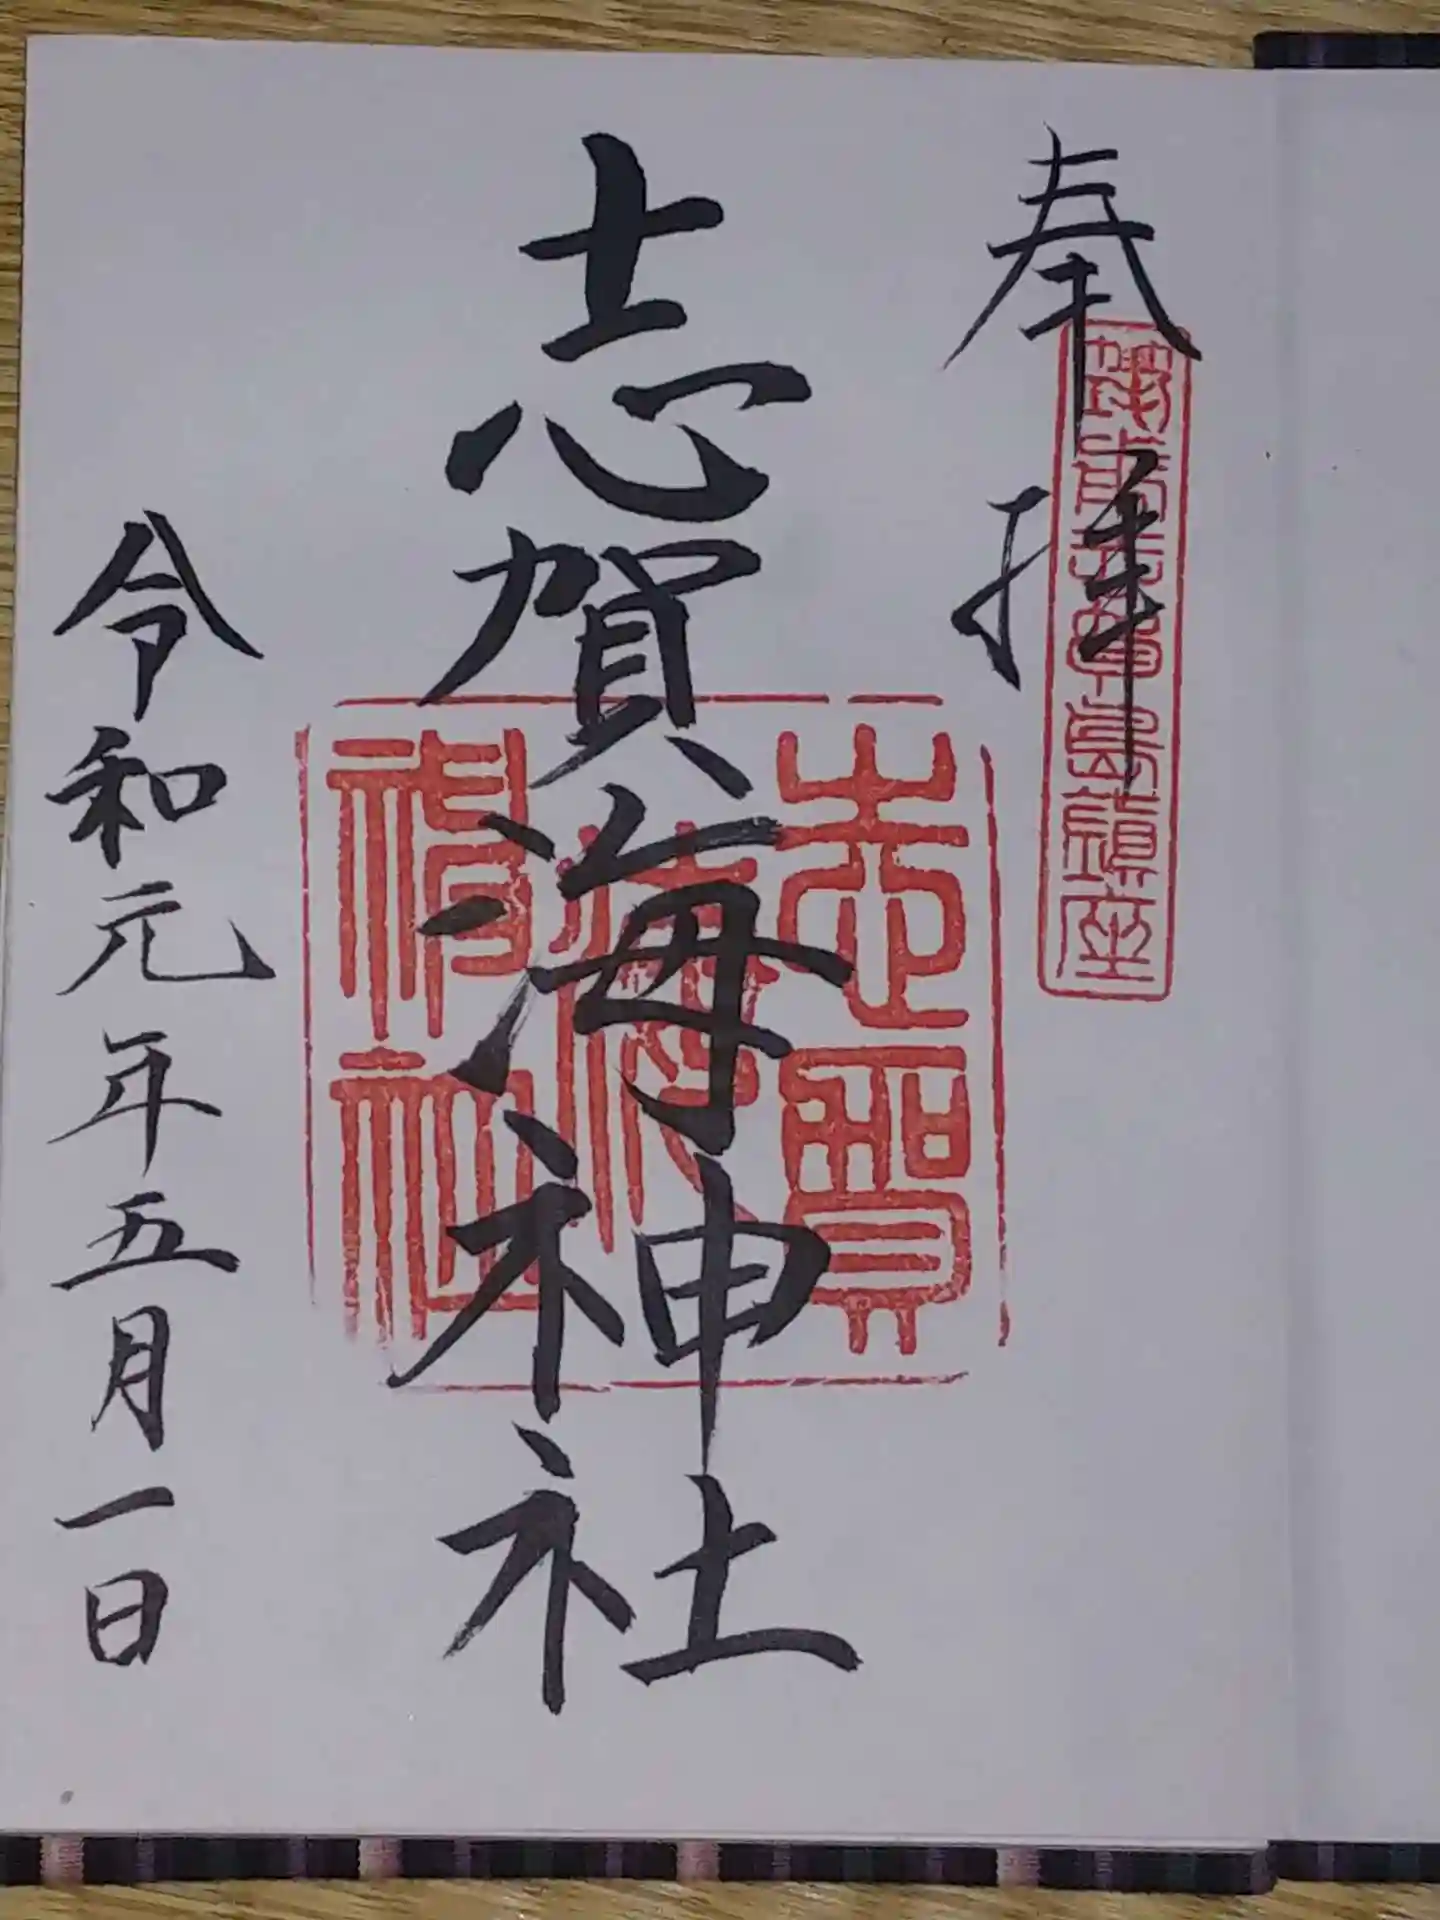 奉拝
筑前志賀島鎮座
志賀海神社
志賀海神社
令和元年五月一日